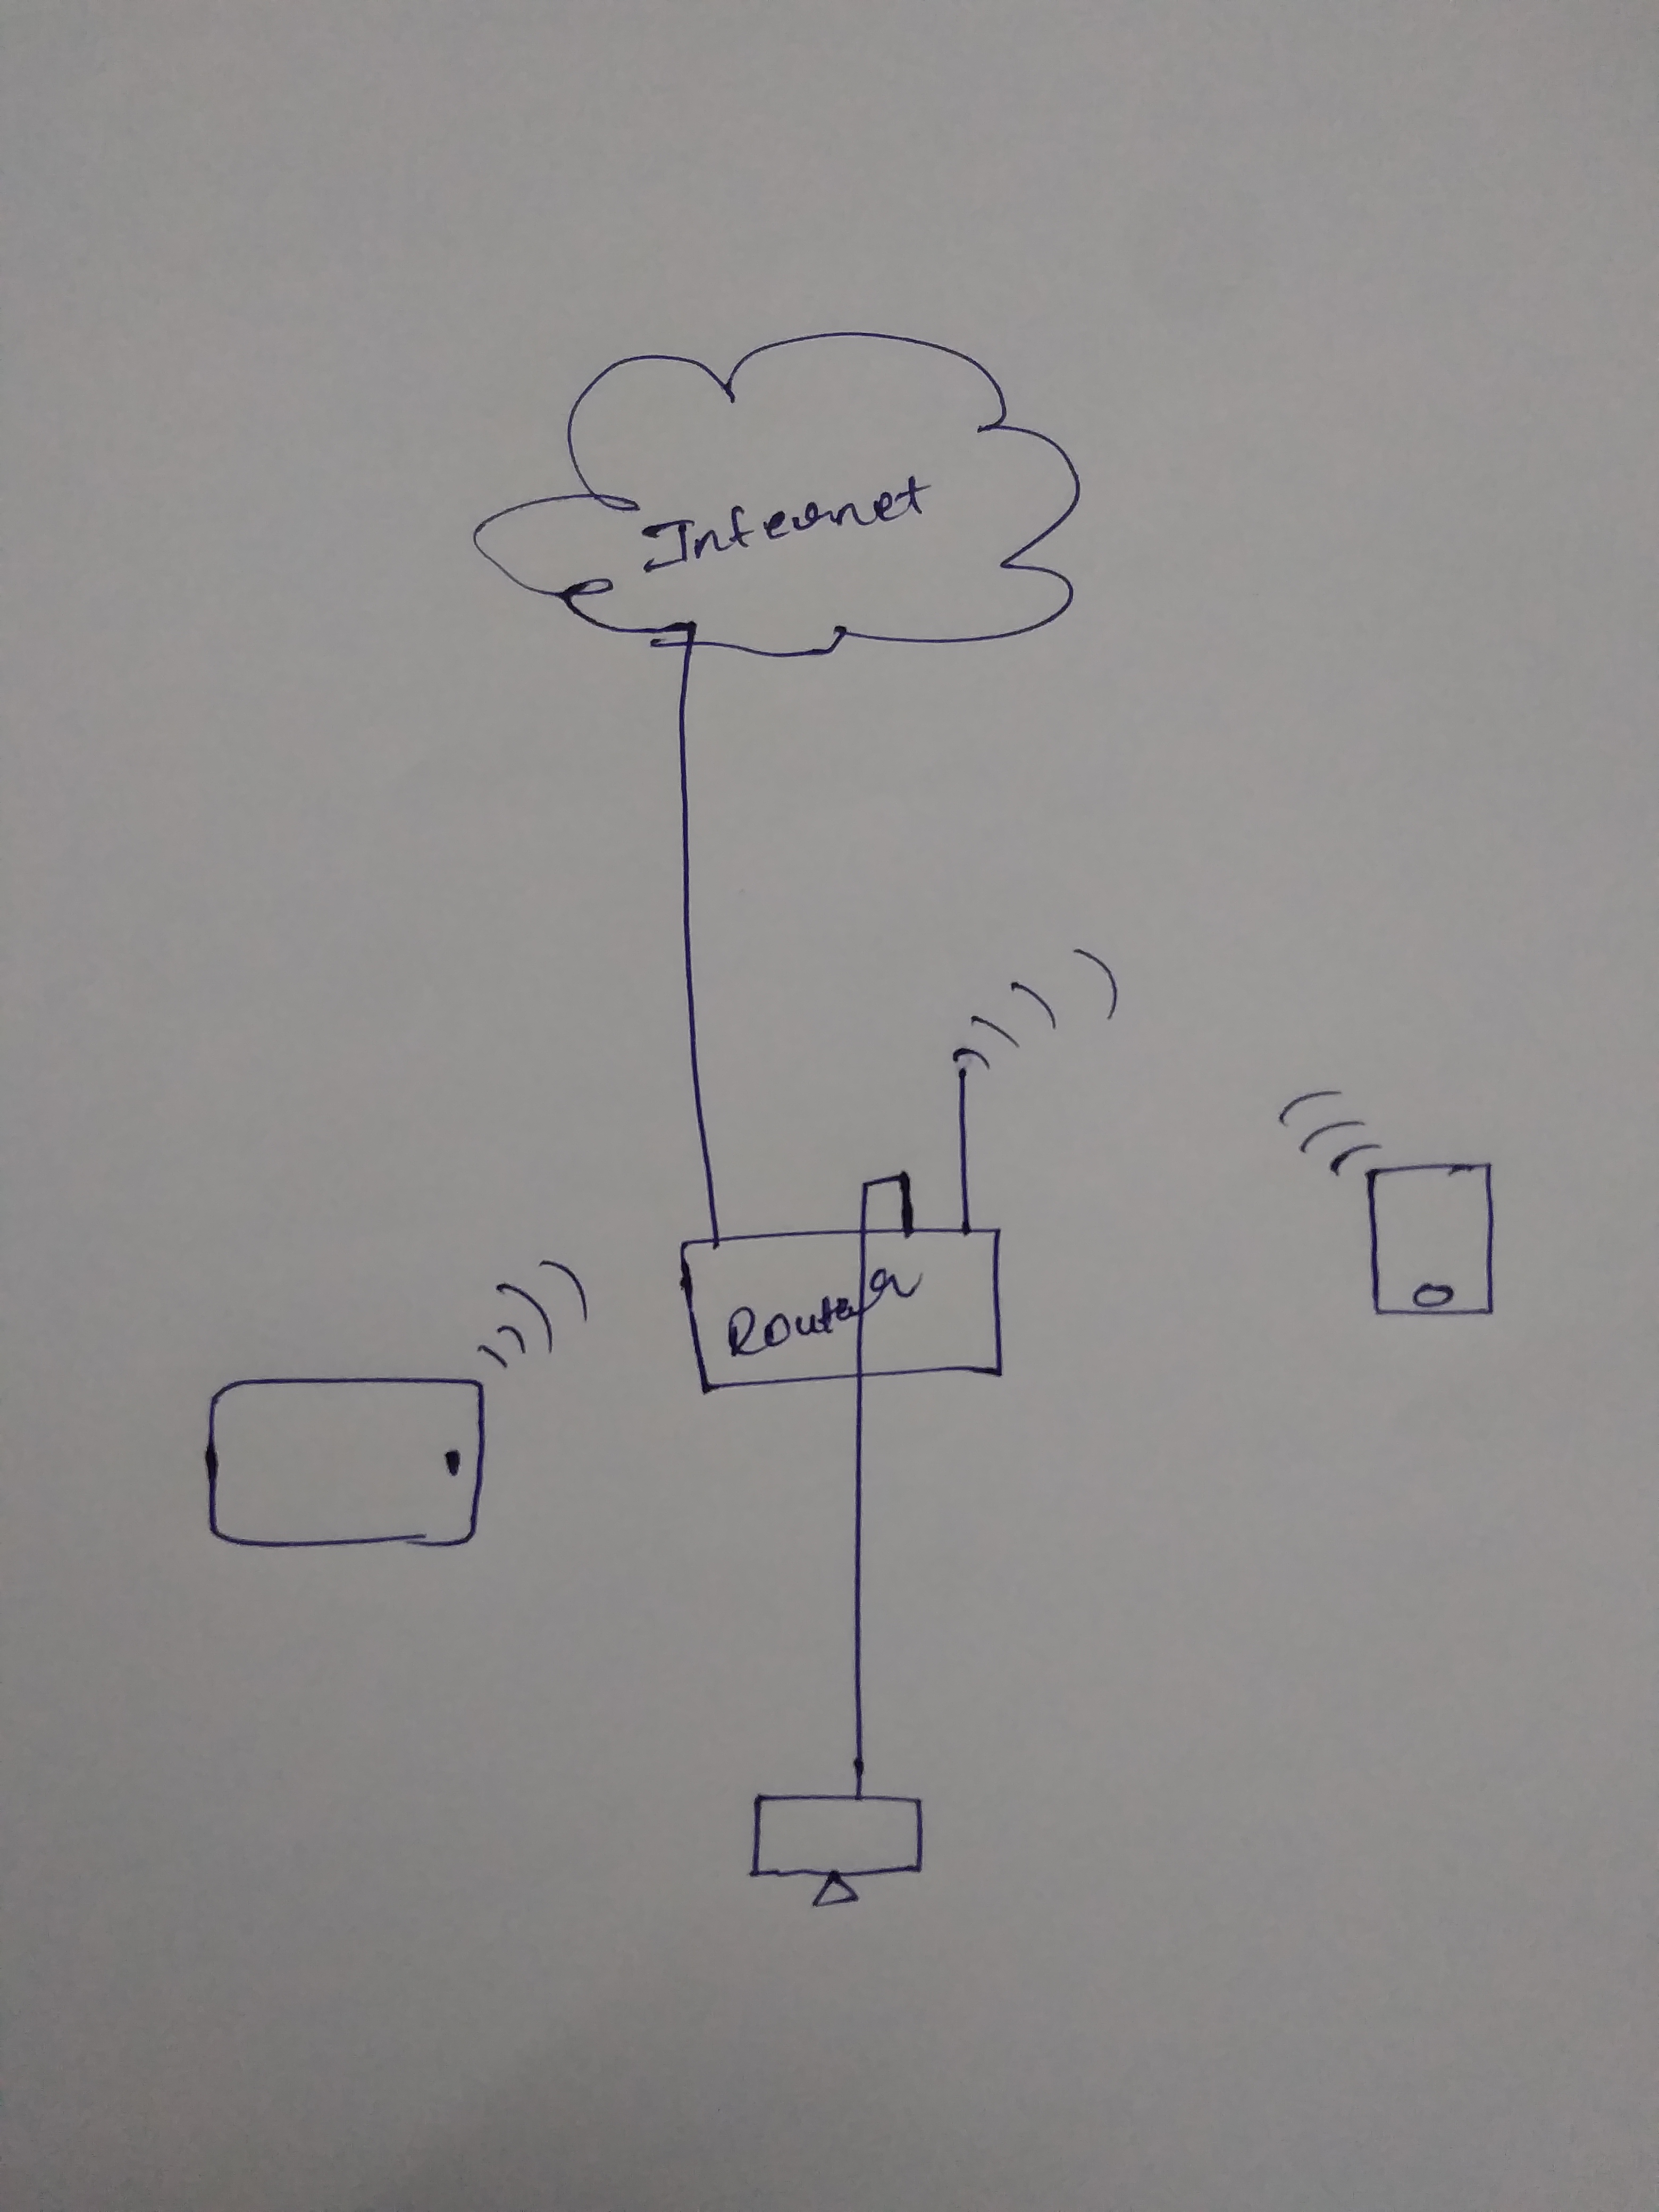 Internet
Router